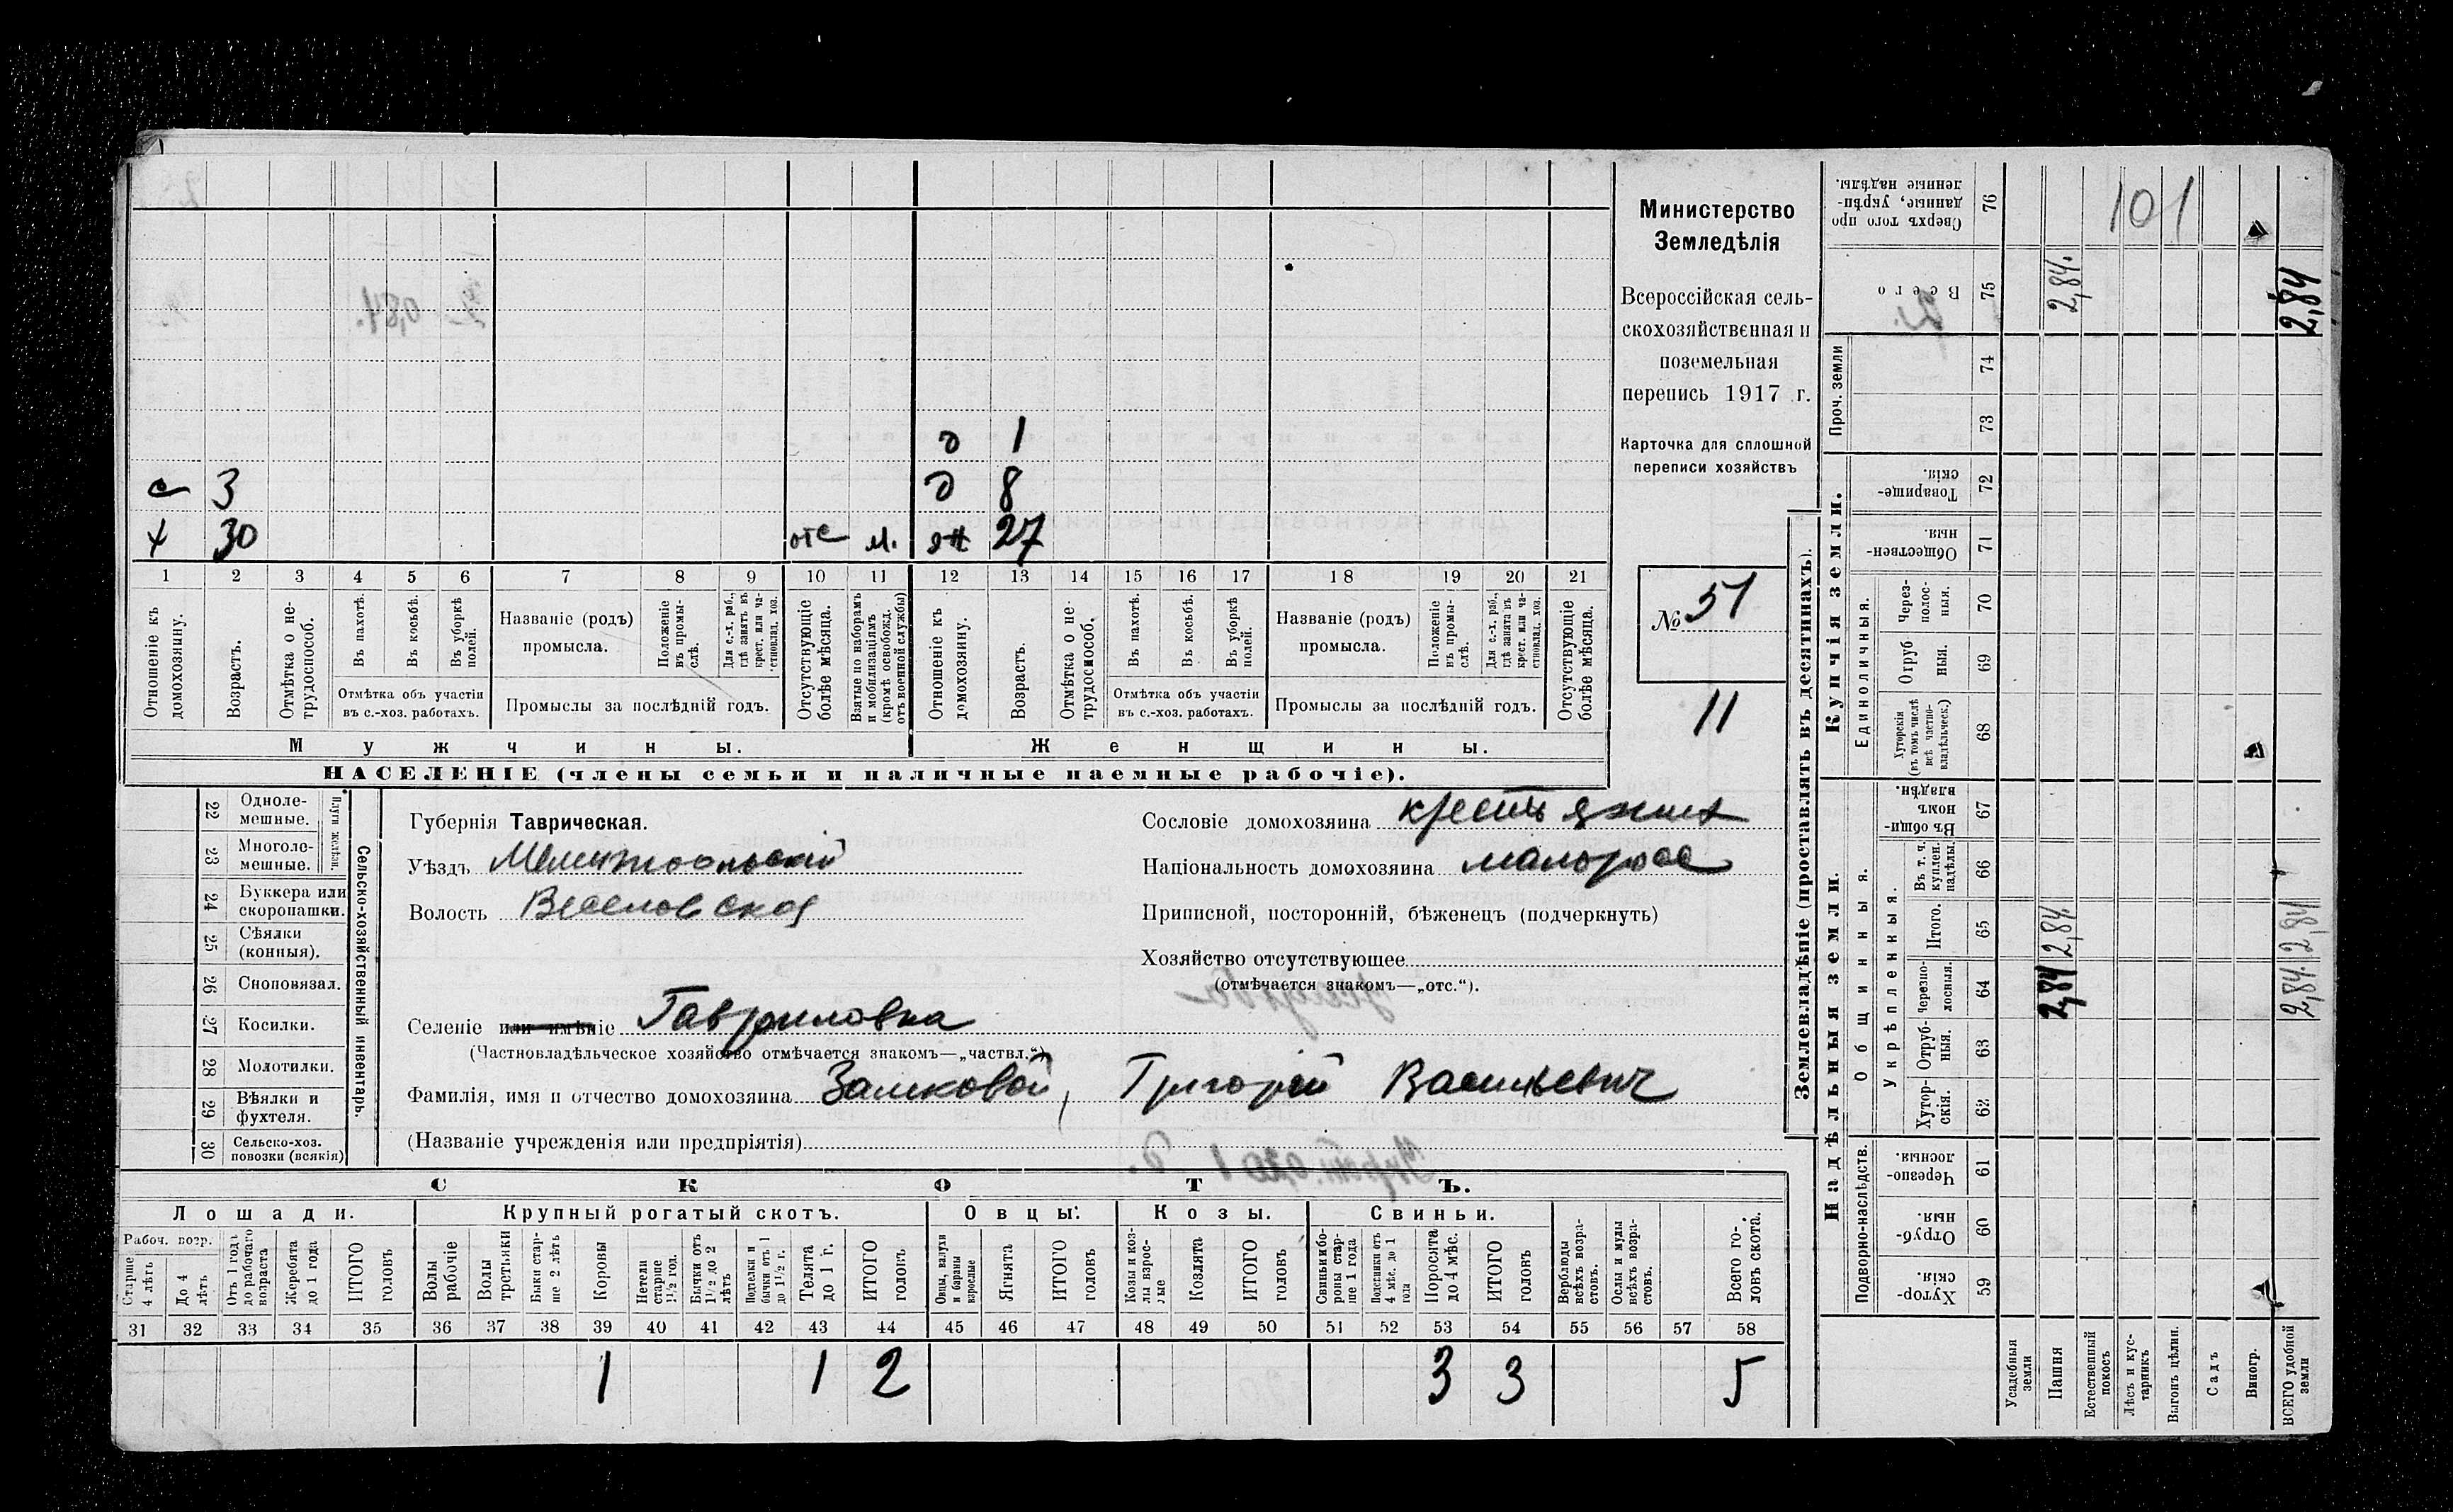 101
Министерство
Земледѣлія
Всероссійская сель-
скохозяйственная и
поземельная
перепись 1917 г.
Карточка для сплошной
переписи хозяйствъ
№ 51
11
д 1
с 3 д 8
х 30 отс м. ж 27
1 2 3 4 5 6 7 8 9 10 11 12 13 14 15 16 17 18 19 20 21
Отношеніе къ домохозяину.
Возрастъ.
Отмѣтка о не-трудоспособ.
Въ пахотѣ.
Въ косьбѣ.
Въ уборкѣ полей.
Отмѣтка объ участіи
въ с.-хоз. работахъ.
Названіе (родъ)
промысла.
Положеніе въ промы-слѣ.
Для с.-х. раб., гдѣ занятъ въ крест. или ча-стновлад. хоз.
Промыслы за послѣдній годъ.
Отсутствующіе болѣе мѣсяца.
Взятые по наборамъ и мобилизаціямъ (кромѣ освобожд. отъ военной службы)
Отношеніе къ домохозяину.
Возрастъ.
Отмѣтка о не-трудоспособ.
Въ пахотѣ.
Въ косьбѣ.
Въ уборкѣ полей.
Отмѣтка объ участіи
въ с.-хоз. работахъ.
Названіе (родъ)
промысла.
Положеніе въ промы-слѣ.
Для с.-х. раб., гдѣ занята въ крест. или ча-стновлад. хоз.
Промыслы за послѣдній годъ.
Отсутствующіе болѣе мѣсяца.
Мужчины.
Женщины.
НАСЕЛЕНІЕ (члены семьи и наличные наемные рабочіе).
Сельско-хозяйственный инвентарь.
Плуги желѣзн.
22 Одноле-мешные.
23 Многоле-мешные.
24 Буккера или скоропашки.
25 Сѣялки (конныя).
26 Сноповязал.
27 Косилки.
28 Молотилки.
29 Вѣялки и фухтеля.
30 Сельско-хоз. повозки (всякія)
Губернія Таврическая.
Уѣздъ Мелитопольскій
Волость Веселовская
Сословіе домохозяина крестьянинъ
Національность домохозяина малоросс
Приписной, посторонній, бѣженецъ (подчеркнуть)
Хозяйство отсутствующее
(отмѣчается знакомъ—„отс.“).
Селеніе или имѣніе Гавриловка
(Частновладѣльческое хозяйство отмѣчается знакомъ—„частвл.“)
Фамилія, имя и отчество домохозяина Замковой, Григорій Васильевич
(Названіе учрежденія или предпріятія)
СКОТЪ.
Лошади. Крупный рогатый скотъ. Овцы. Козы. Свиньи.
Рабоч. возр.
Старше 4 лѣтъ
До 4 лѣтъ
Отъ 1 года до рабочаго возраста
Жеребята до 1 года
ИТОГО головъ
Волы рабочіе
Волы третьяки
Быки стар-ше 2 лѣтъ
Коровы
Нетели старше 1½ год.
Бычки отъ 1½ до 2 лѣтъ
Подтелки и бычки отъ 1 до 1½ г.
Телята до 1 г.
ИТОГО головъ
Овцы, валухи и бараны взрослые
Ягнята
ИТОГО головъ
Козы и коз-лы взрос-лые
Козлята
ИТОГО головъ
Свиньи и бо-ровы стар-ше 1 года
Подсвинки отъ 4 мѣс. до 1 года
Поросята до 4 мѣс.
ИТОГО головъ
Верблюды всѣхъ возра-стовъ.
Ослы и мулы всѣхъ возра-стовъ.
Всего го-ловъ скота.
31 32 33 34 35 36 37 38 39 40 41 42 43 44 45 46 47 48 49 50 51 52 53 54 55 56 57 58
1 1 2 3 3 5
Землевладѣніе (проставлять въ десятинахъ).
Надѣльныя земли.
Купчія земли.
Проч. земли
Подворно-наслѣдств.
Общинныя.
Укрѣпленныя.
Единоличныя.
Сверхъ того про-данные, укрѣп-ленные надѣлы. 76
Всего 75 2,84. 2,84
74
73
Товарище-скія. 72
Обществен-ныя. 71
Через-полос-ныя. 70
Отруб-ныя. 69
Хуторскія (въ томъ числѣ всѣ частно-владѣльческ.) 68
Въ общи-номъ владѣн. 67
Въ т. ч. куплен. надѣлы. 66
Итого. 65 2,84 2,84
Черезпо-лосныя. 64 2,84 2,84
Отруб-ныя. 63
Хутор-скія. 62
Черезпо-лосныя. 61
Отруб-ныя. 60
Хутор-скія. 59
Усадебныя земли
Пашня
Естественный покосъ
Лѣсъ и кус-тарникъ
Выгонъ цѣлин.
Садъ
Виногр.
ВСЕГО удобной земли